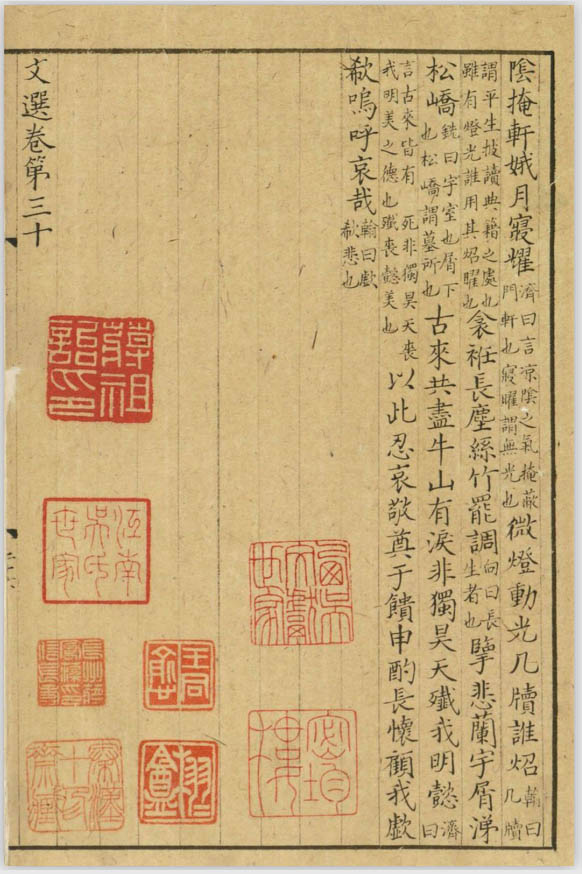 陰掩軒娥月寢耀濟曰言凉陰之氣掩蔽門軒也寢曜謂無光也微燈動光几牘誰炤翰曰几牘
謂平生披讀典籍之處也雖有燈光誰用其炤曜也衾袵長塵絲竹罷調向曰長生者也擥悲蘭宇屑涕
松嶠銑曰宇室也屑下也松嶠謂墓所也古來共盡牛山有淚非獨昊天殲我明懿濟曰
言古來皆有死非獨昊天喪我明美之德也殲喪懿美也以此忍哀敬奠于饋申酌長懷顧我歔
欷嗚呼哀哉翰曰歔欷悲也
文選卷第三十
蔣祖詒印
江南吳氏世家
密均樓